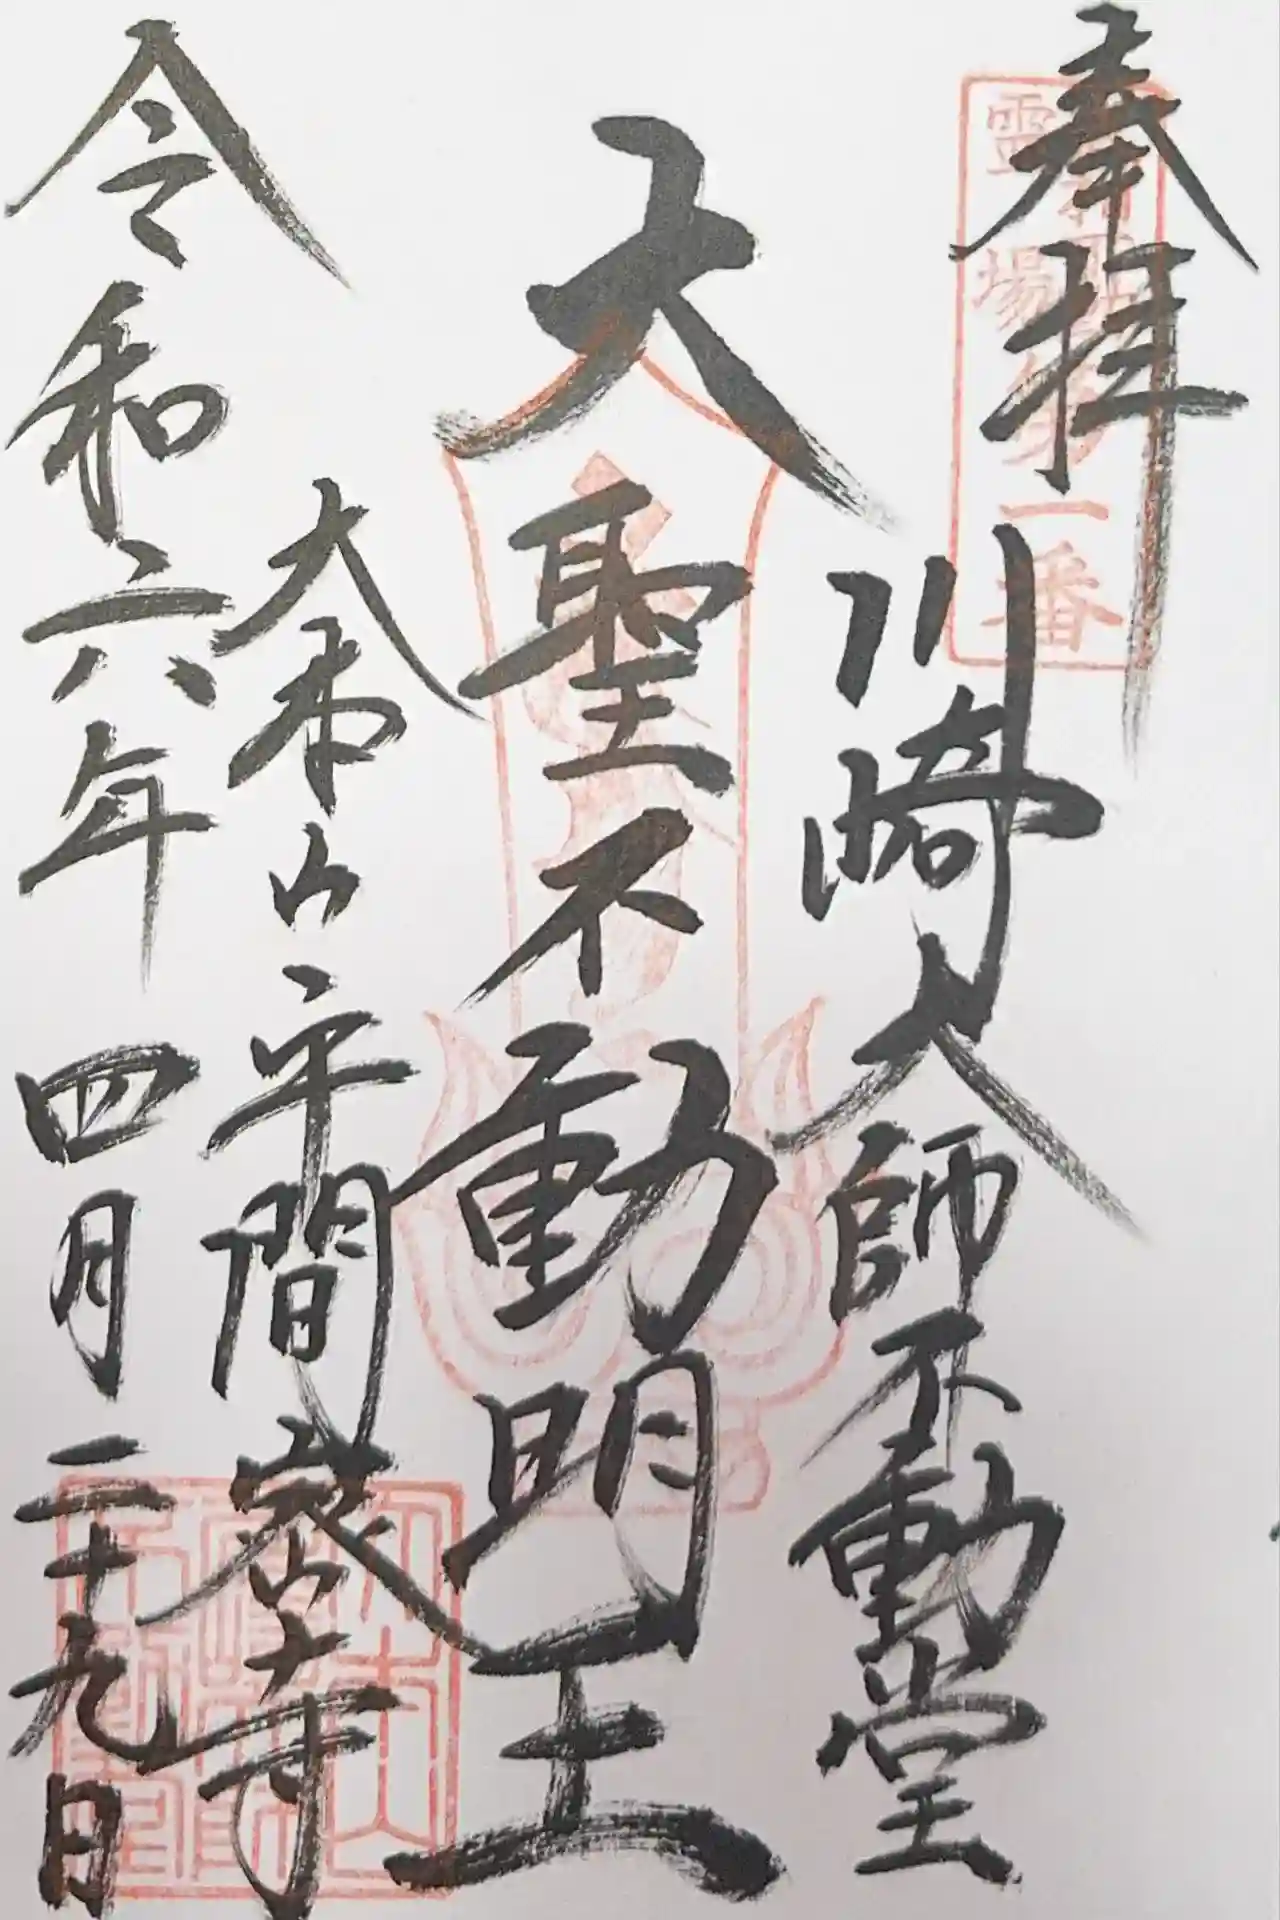 奉拝
川崎大師不動堂
大聖不動明王
大本山平間寺
令和六年四月二十九日
霊場
一番